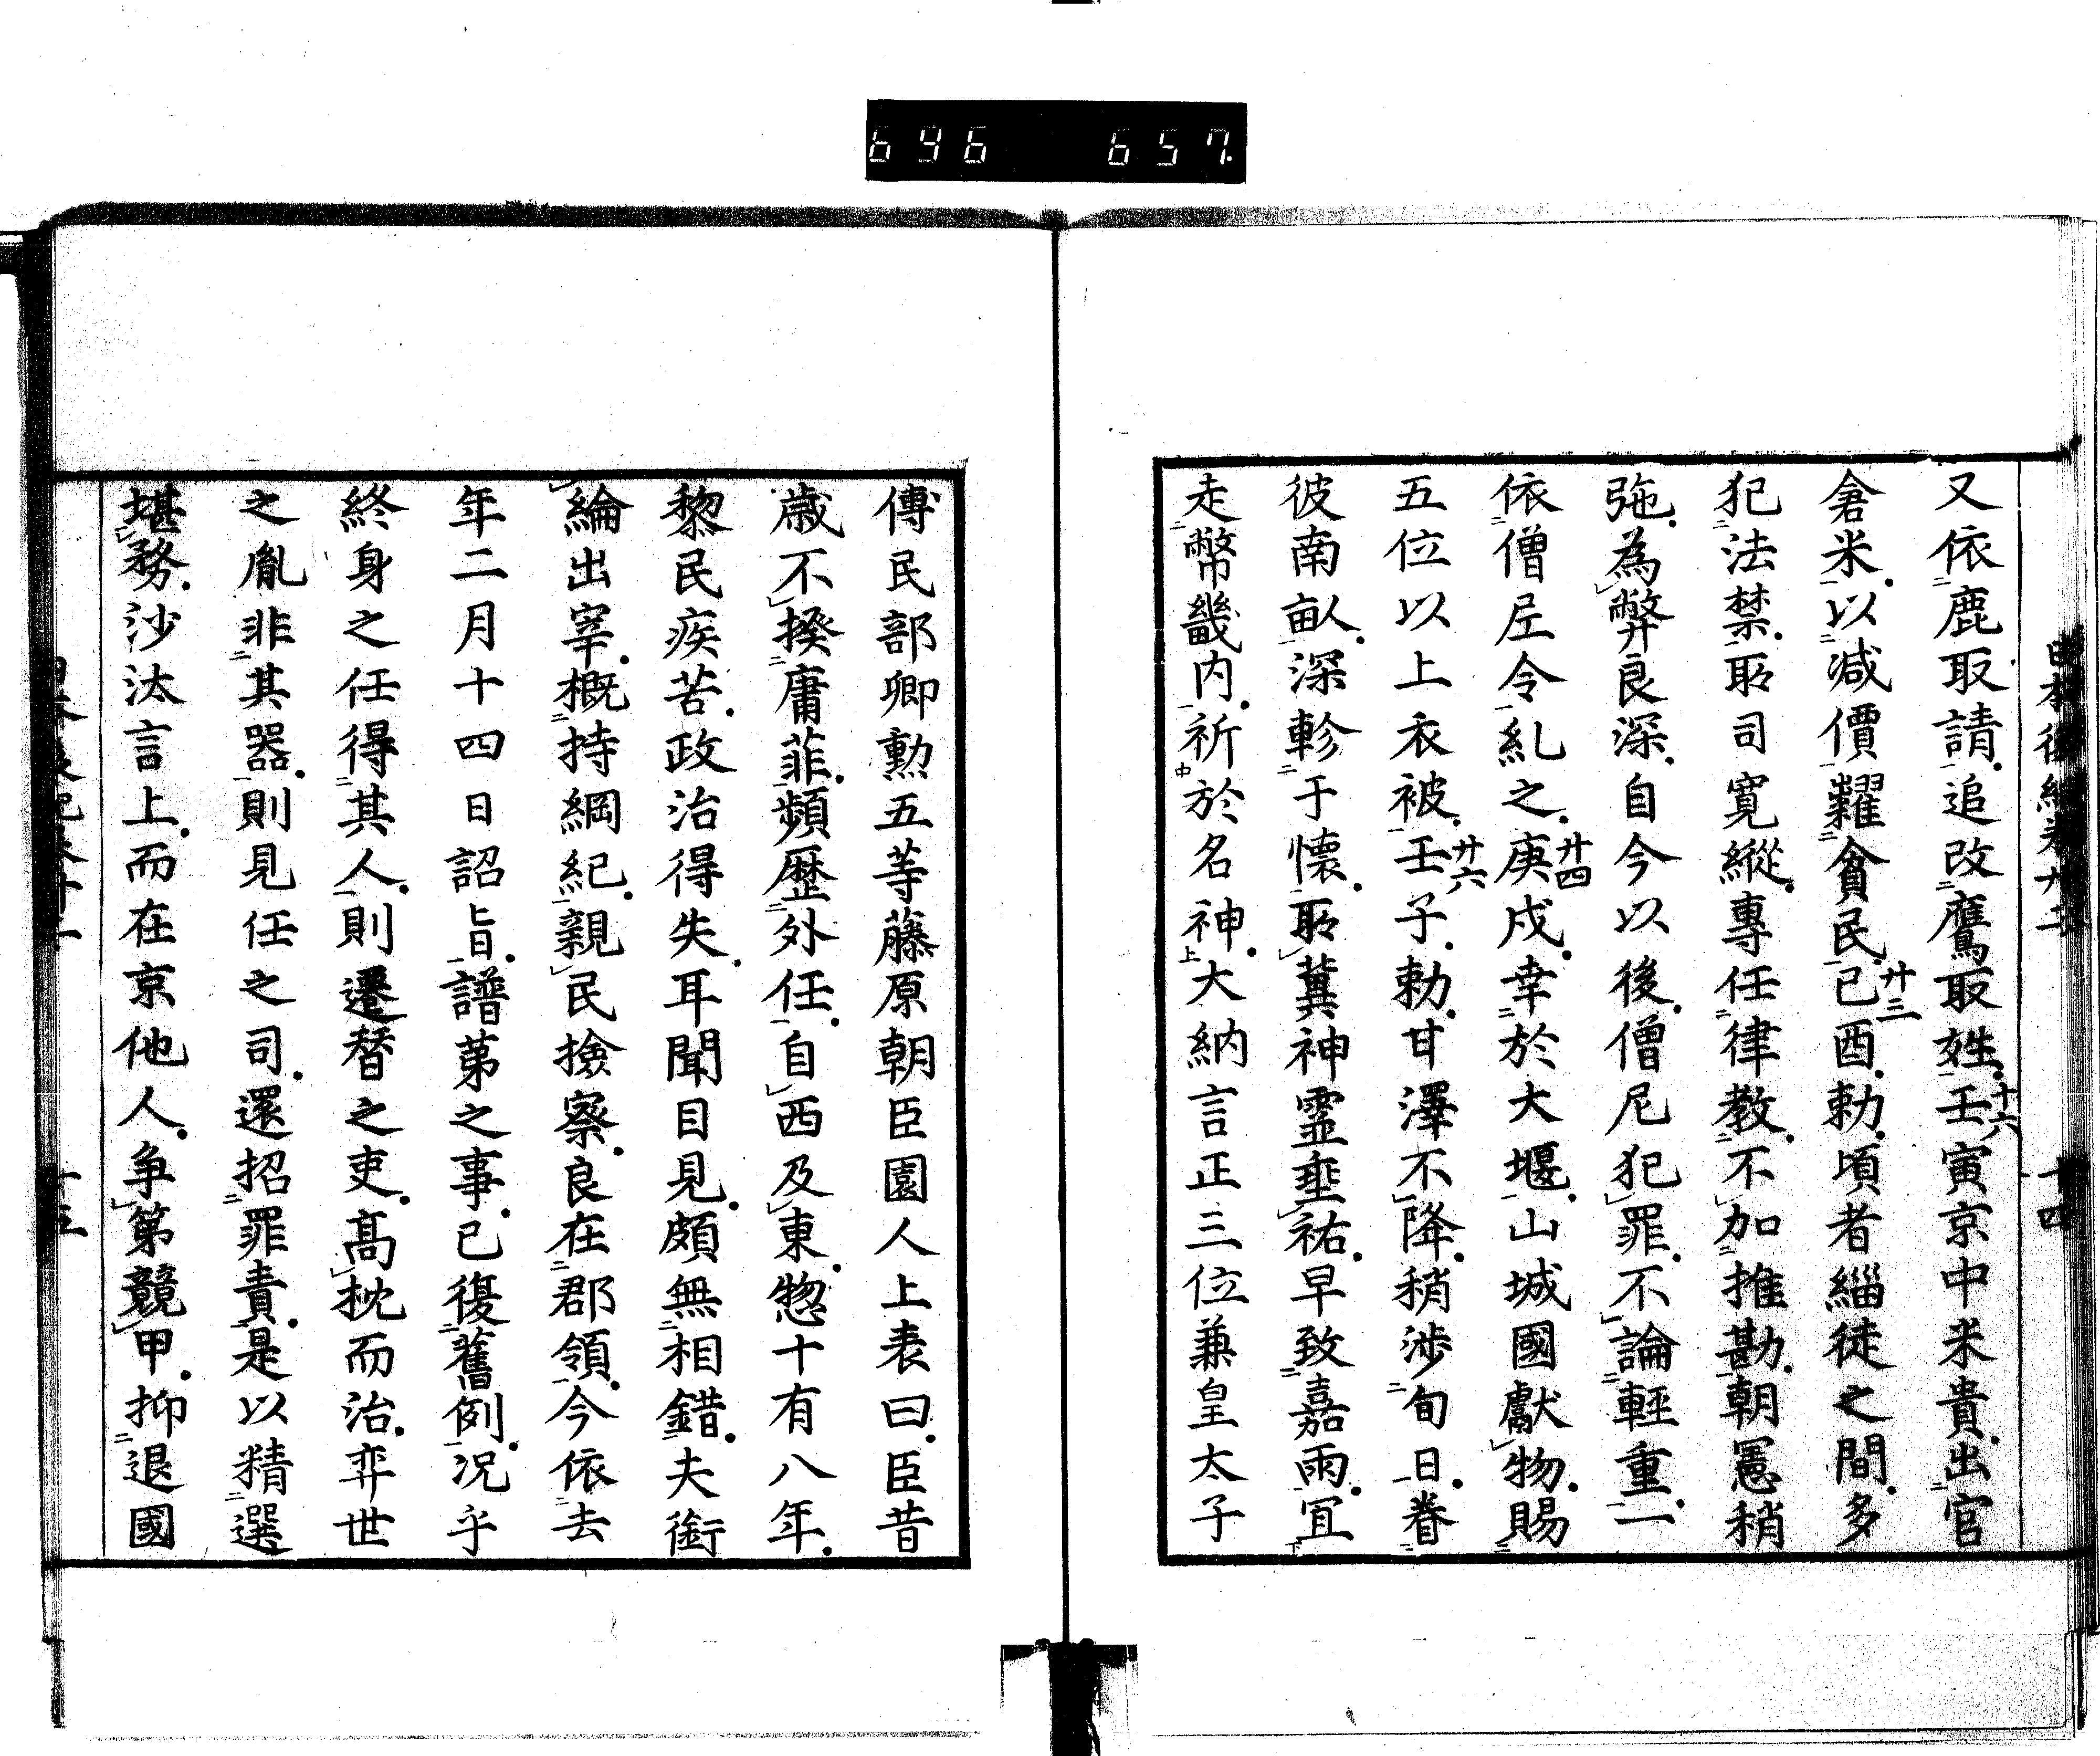 646 657
又依鹿取請追改鷹取姓壬寅京中米貴出官
十六
倉米以減價糶貧民己酉勅頃者緇徒之間多
廿三
犯法禁所司寛縦專任律教不加推勘朝憲稍
弛為弊良深自今以後僧尼犯罪不論輕重一
依僧尼令糺之庚戌幸於大堰山城國獻物賜
廿四
五位以上衣被壬子勅甘澤不降稍渉旬日眷
廿六
彼南畝深軫于懷所冀神霊垂祐早致嘉雨宜
走幣畿内祈於名神大納言正三位兼皇太子
傅民部卿勲五等藤原朝臣園人上表曰臣昔
歳不揆庸菲頻歴外任自西及東惣十有八年
黎民疾苦政治得失耳聞目見頗無相錯夫銜
綸出宰概持綱紀親民撿察良在郡領今依去
年二月十四日詔旨譜第之事已復舊例況乎
終身之任得其人則遷替之吏髙枕而治弈世
之胤非其器則見任之司還招罪責是以精選
堪務沙汰言上而在京他人争第競甲抑退國